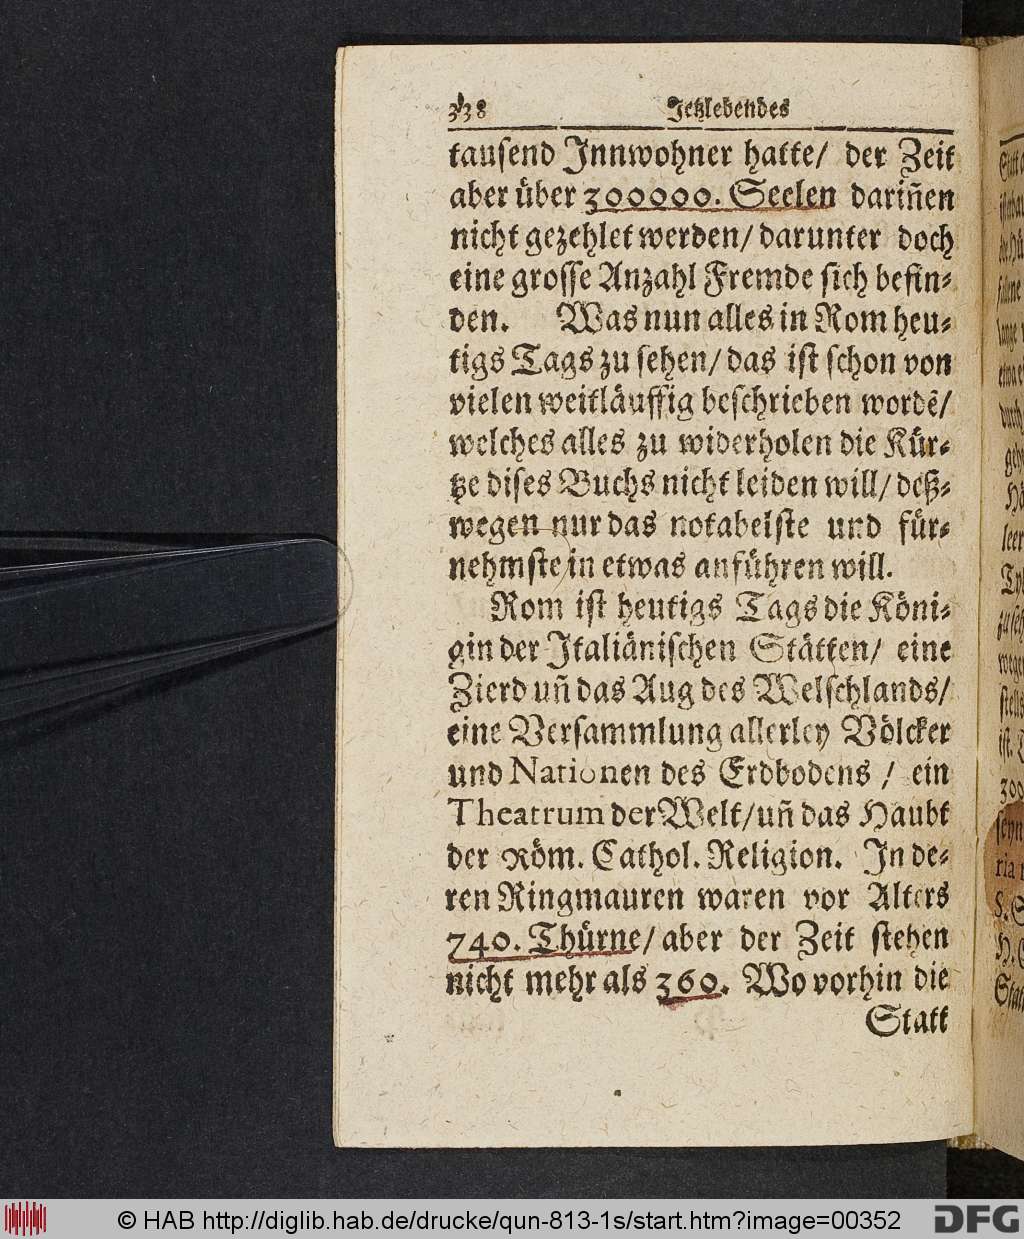 338 Jetzlebendes
tausend Innwohner hatte/ der Zeit
aber über 300000. Seelen dariñen
nicht gezehlet werden/ darunter doch
eine grosse Anzahl Fremde sich befin-
den. Was nun alles in Rom heu-
tigs Tags zu sehen/ das ist schon von
vielen weitläuffig beschrieben wordẽ/
welches alles zu widerholen die Kür-
tze dises Buchs nicht leiden will/ deß-
wegen nur das notabelste und für-
nehmste in etwas anführen will.
Rom ist heutigs Tags die Köni-
gin der Italiänischen Stätten/ eine
Zierd uñ das Aug des Welschlands/
eine Versammlung allerley Völcker
und Nationen des Erdbodens / ein
Theatrum der Welt/ uñ das Haubt
der Röm. Cathol. Religion. In de-
ren Ringmauren waren vor Alters
740. Thürne/ aber der Zeit stehen
nicht mehr als 360. Wo vorhin die
Statt
© HAB http://diglib.hab.de/drucke/qun-813-1s/start.htm?image=00352 DFG